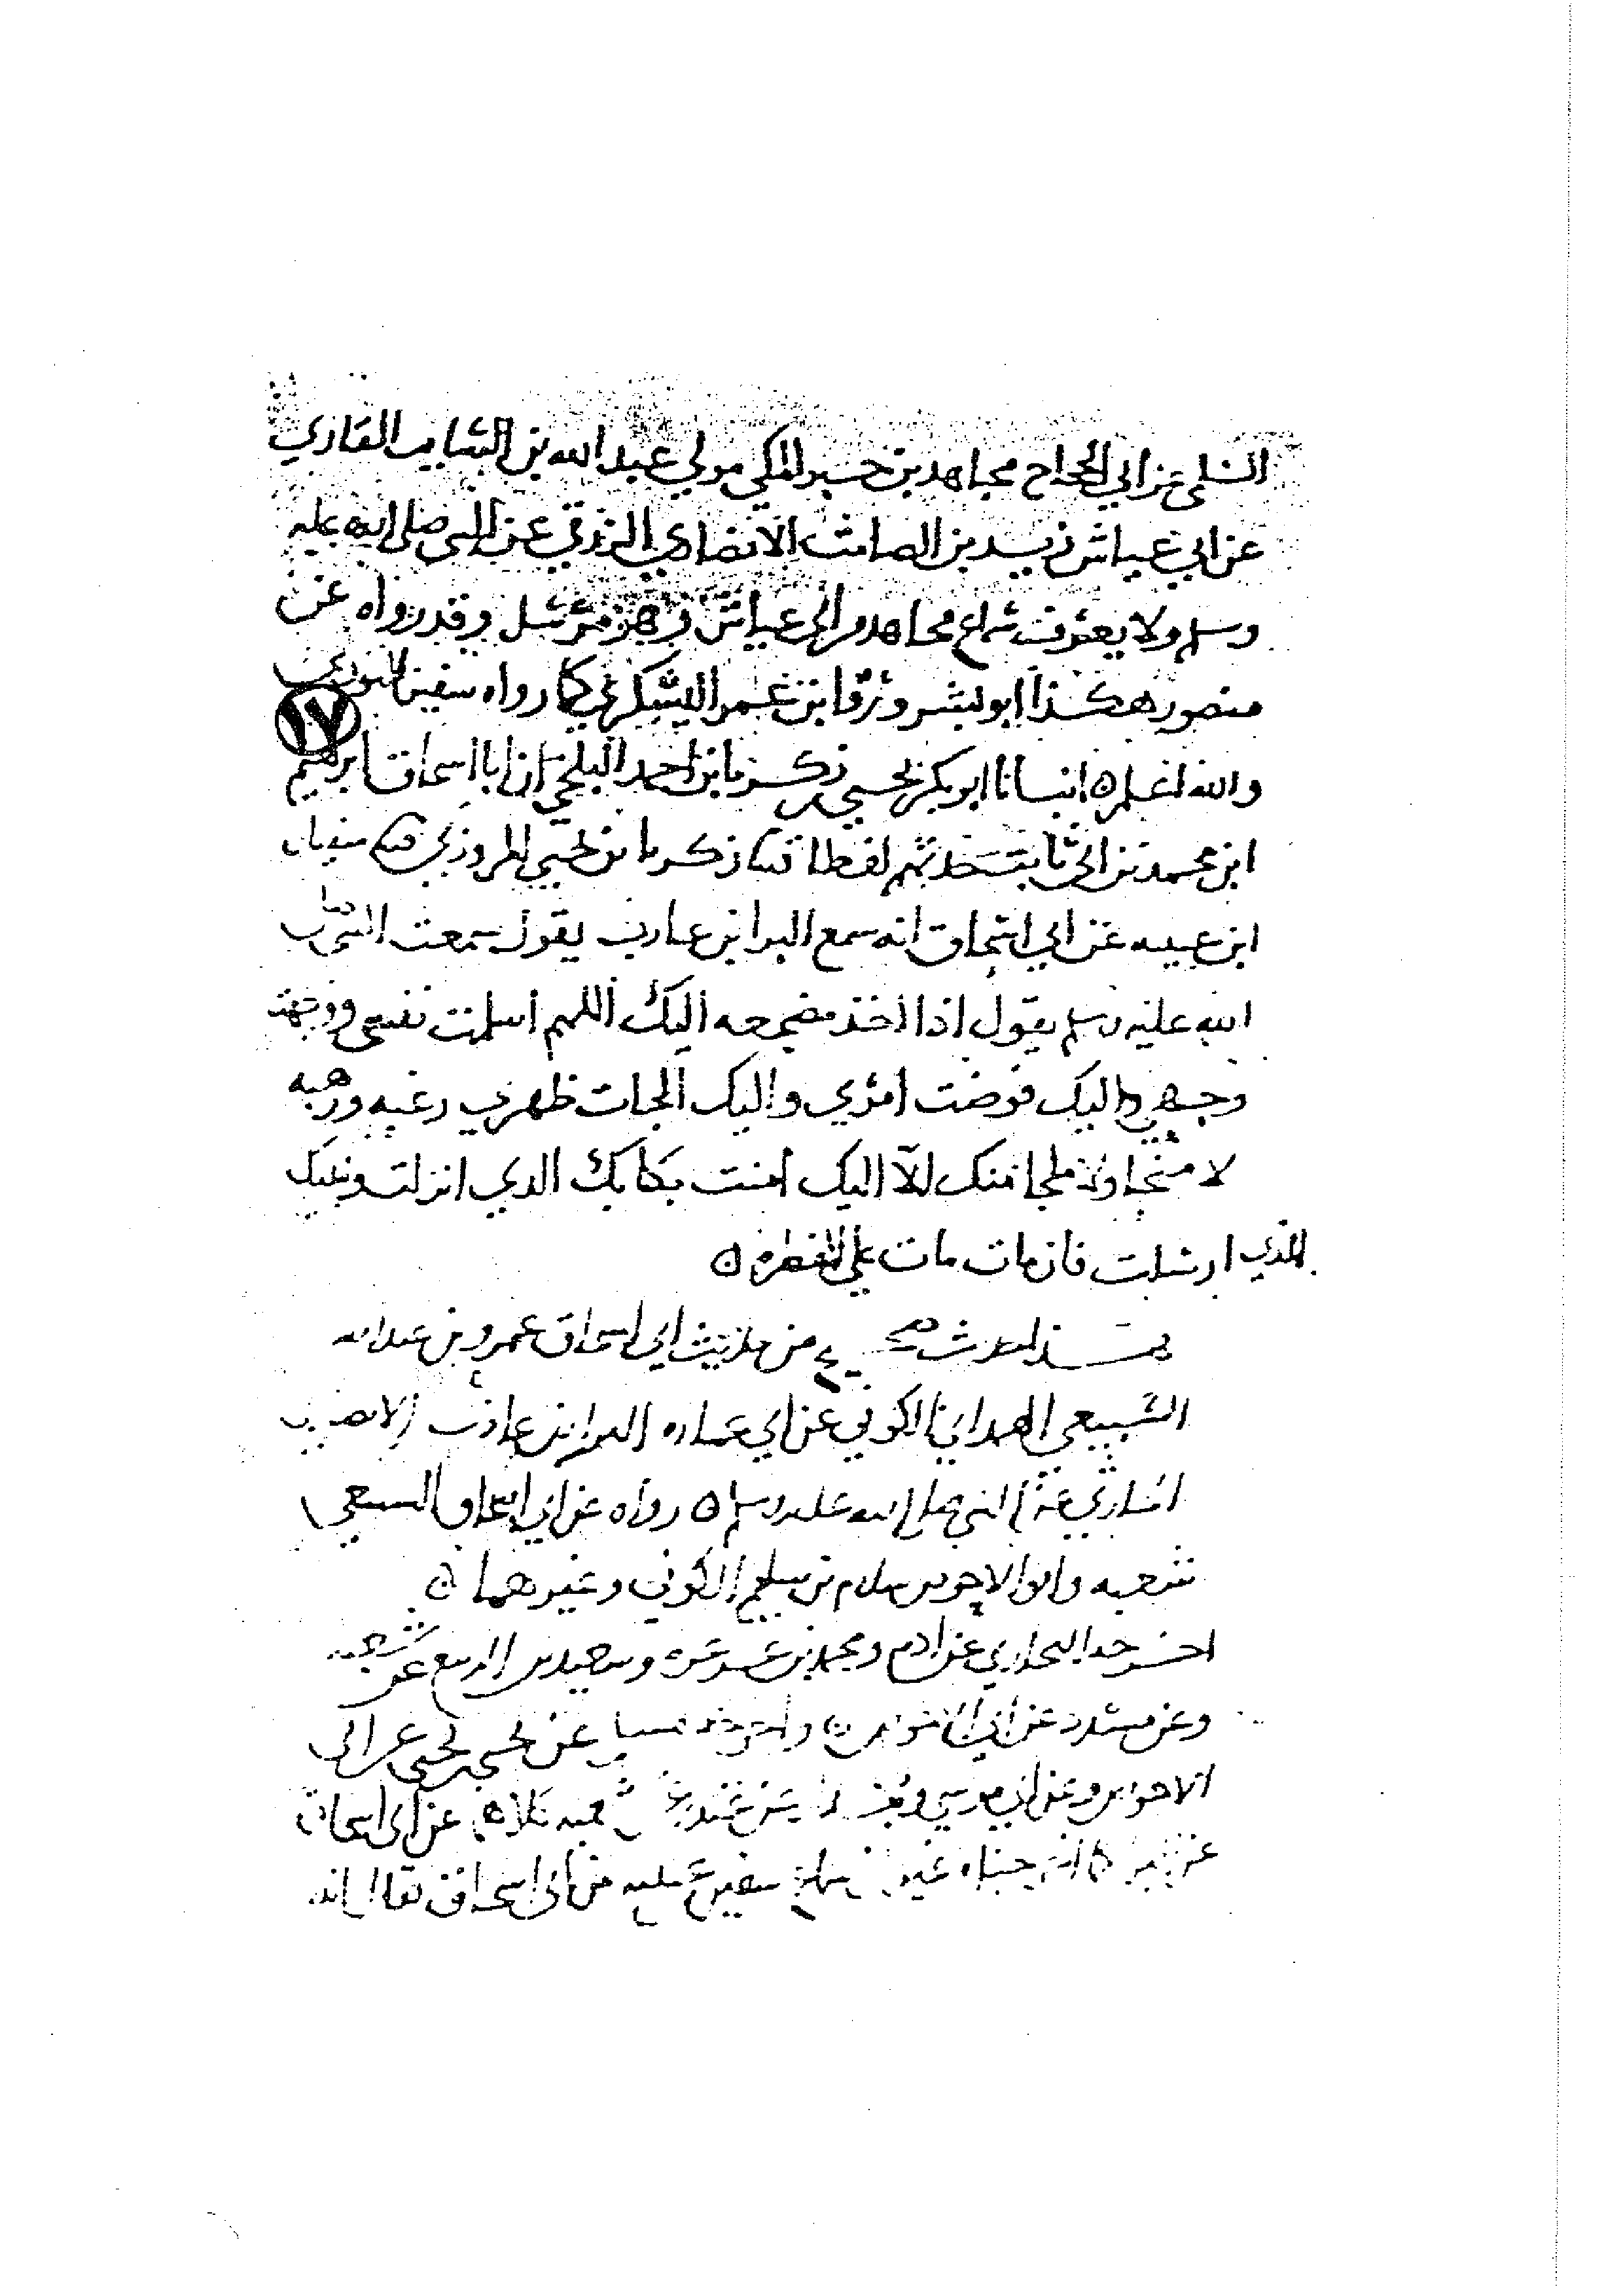 السلمي عن ابي الحجاج مجاهد بن جبر المكي مولي عبد الله بن السايب القاري
عن ابي عياش زيد بن الصامت الانصاري الزرقي عن النبي صلى الله عليه
وسلم ولا يعرف سماع مجاهد من ابي عياش وهو مرسل وقد رواه عن
منصور هكذا ابو بشر ورقا بن عمر اليشكري كما رواه سفين الثوري
١٧
والله اعلم ٥ انبانا ابو بكر يحيى بن زكريا بن احمد البلخي ان ابا اسحاق ابرهيم
ابن محمد بن ابي ثابت حدثهم لفظا ثنا زكريا بن يحيي المروزي ثنا سفيان
ابن عيينه عن ابي اسحاق انه سمع البرا بن عازب يقول سمعت النبي صلى
الله عليه وسلم يقول اذا اخذ مضجعه اليك اللهم اسلمت نفسي ووجهت
وجهي واليك فوضت امري واليك الجات ظهري رغبه ورهبه
لا منجا ولا ملجا منك الا اليك امنت بكتابك الذي انزلت ونبيك
الذي ارسلت فان مات مات علي الفطره ٥
هذا حديث صحيح من حديث ابي اسحاق عمرو بن عبد الله
السبيعي الهمداني الكوفي عن ابي عماره البرا بن عازب الانصاري
عن النبي صلى الله عليه وسلم ٥ رواه عن ابي اسحاق السبيعي
شعبه وابو الاحوص سلام بن سليم الكوفي وغيرهما ٥
اخرجه البخاري عن ادم ومحمد بن عرعره وسعيد بن الربيع عن شعبه
وعن مسدد عن ابي الاحوص ٥ واخرجه مسلم عن يحيى بن يحيى عن ابي
الاحوص وعن ابي موسي وبندار عن غندر عن شعبه كلاهما عن ابي اسحاق
سفين عيينه من ابي اسحاق فقال انه